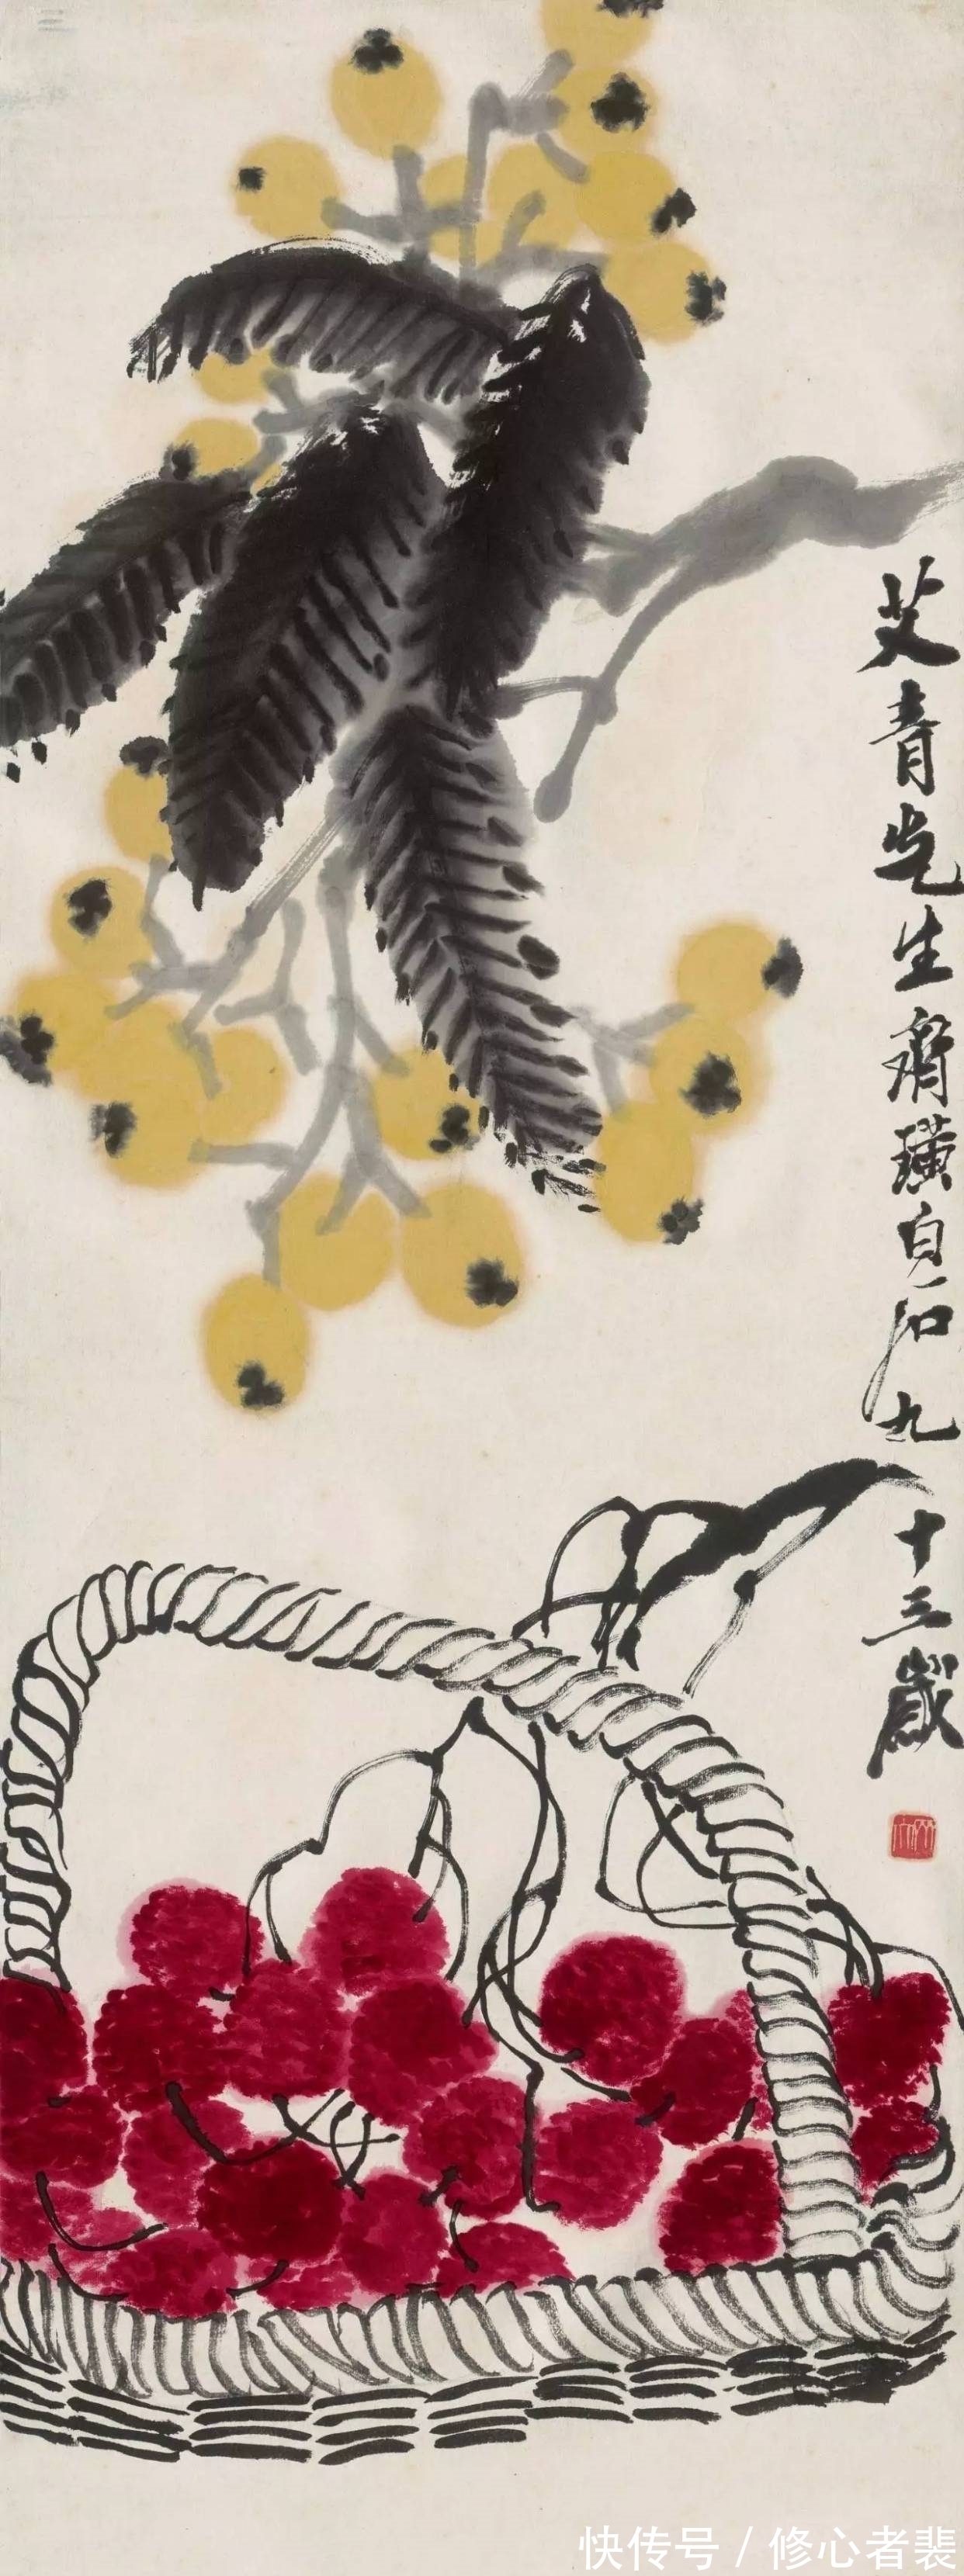 艾青先生齊璜白石九十三歲
快传号 / 修心者裴